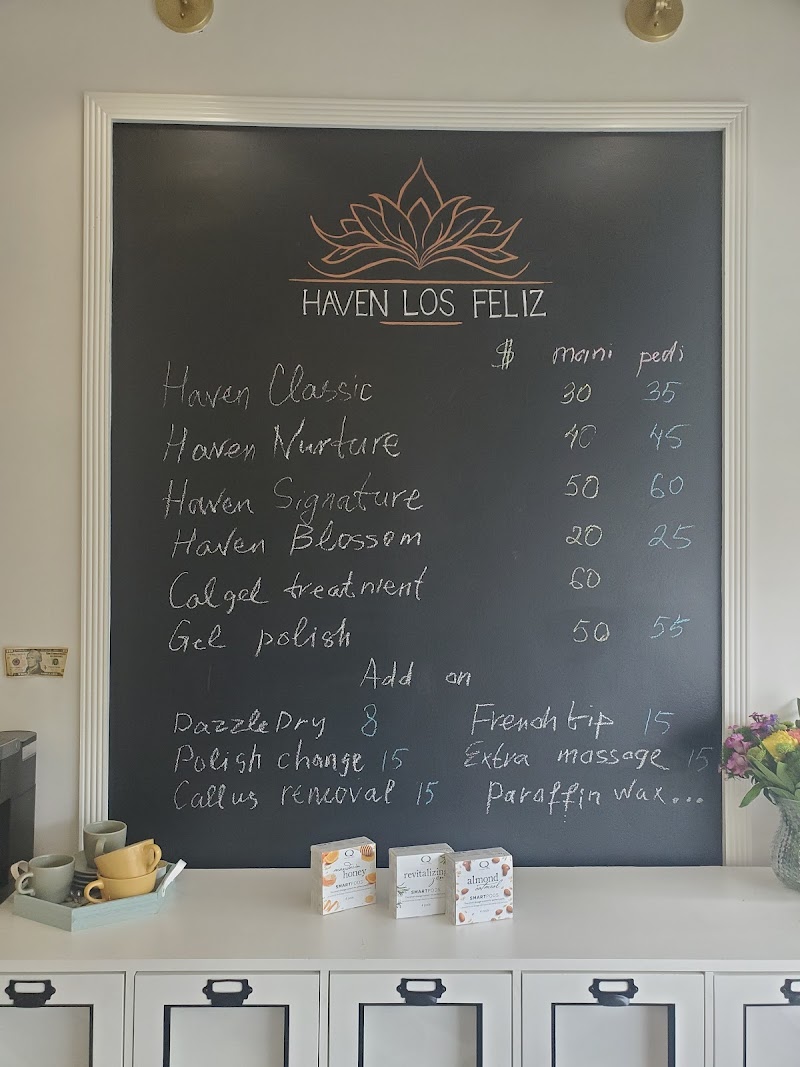 HAVEN LOS FELIZ
$ mani pedi
Haven Classic 30 35
Haven Nurture 40 45
Haven Signature 50 60
Haven Blossom 20 25
Calgel treatment 60
Gel polish 50 55
Add on
DazzleDry 8 French tip 15
Polish change 15 Extra massage 15
Callus removal 15 Paraffin wax...
honey
SMARTPODS
revitalizing
SMARTPODS
almond
SMARTPODS